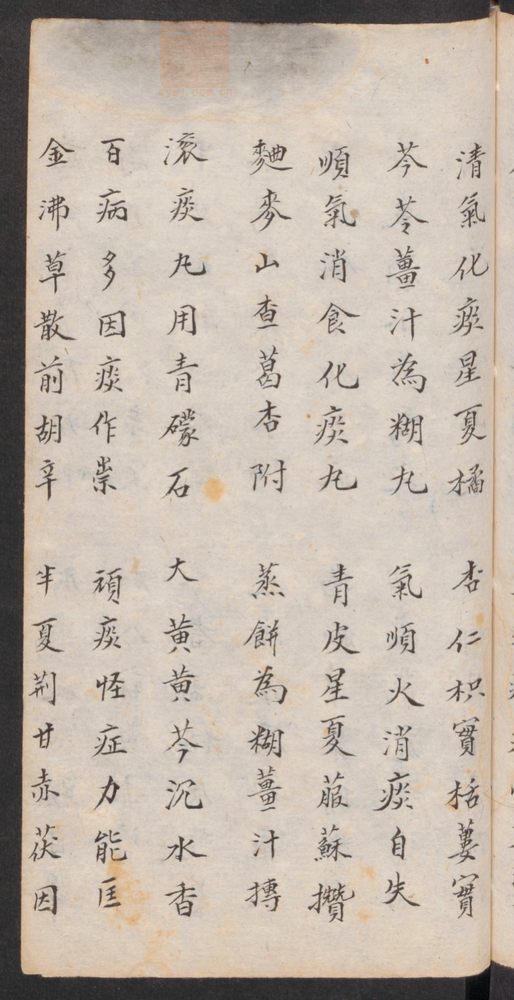 清氣化痰星夏橘 杏仁枳實栝蔞實
芩苓薑汁為糊丸 氣順火消痰自失
順氣消食化痰丸 青皮星夏菔蘇攢
麯麥山查葛杏附 蒸餅為糊薑汁摶
滚痰丸用青礞石 大黄黄芩沉水香
百病多因痰作祟 頑痰怪症力能匡
金沸草散前胡辛 半夏荆甘赤茯因